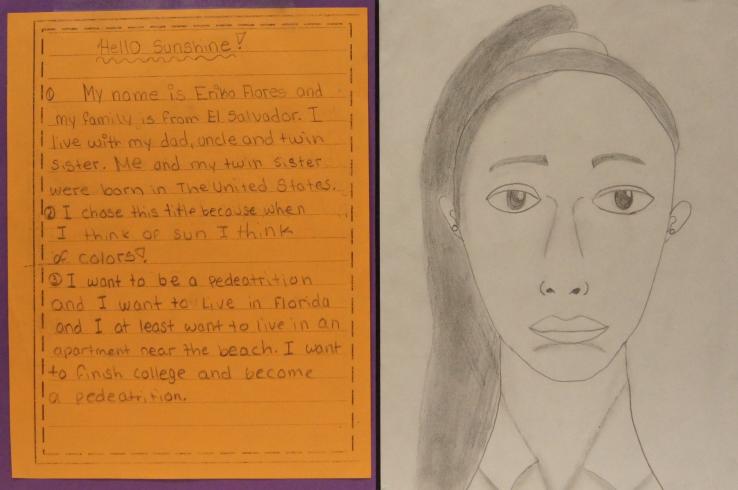 Hello Sunshine!
① My name is Erika Flores and
my family is from El Salvador. I
live with my dad, uncle and twin
sister. Me and my twin sister
were born in The United States.
② I chose this title because when
I think of sun I think
of colors!
③ I want to be a pedeatrition
and I want to Live in Florida
and I at least want to live in an
apartment near the beach. I want
to finish college and become
a pedeatrition.